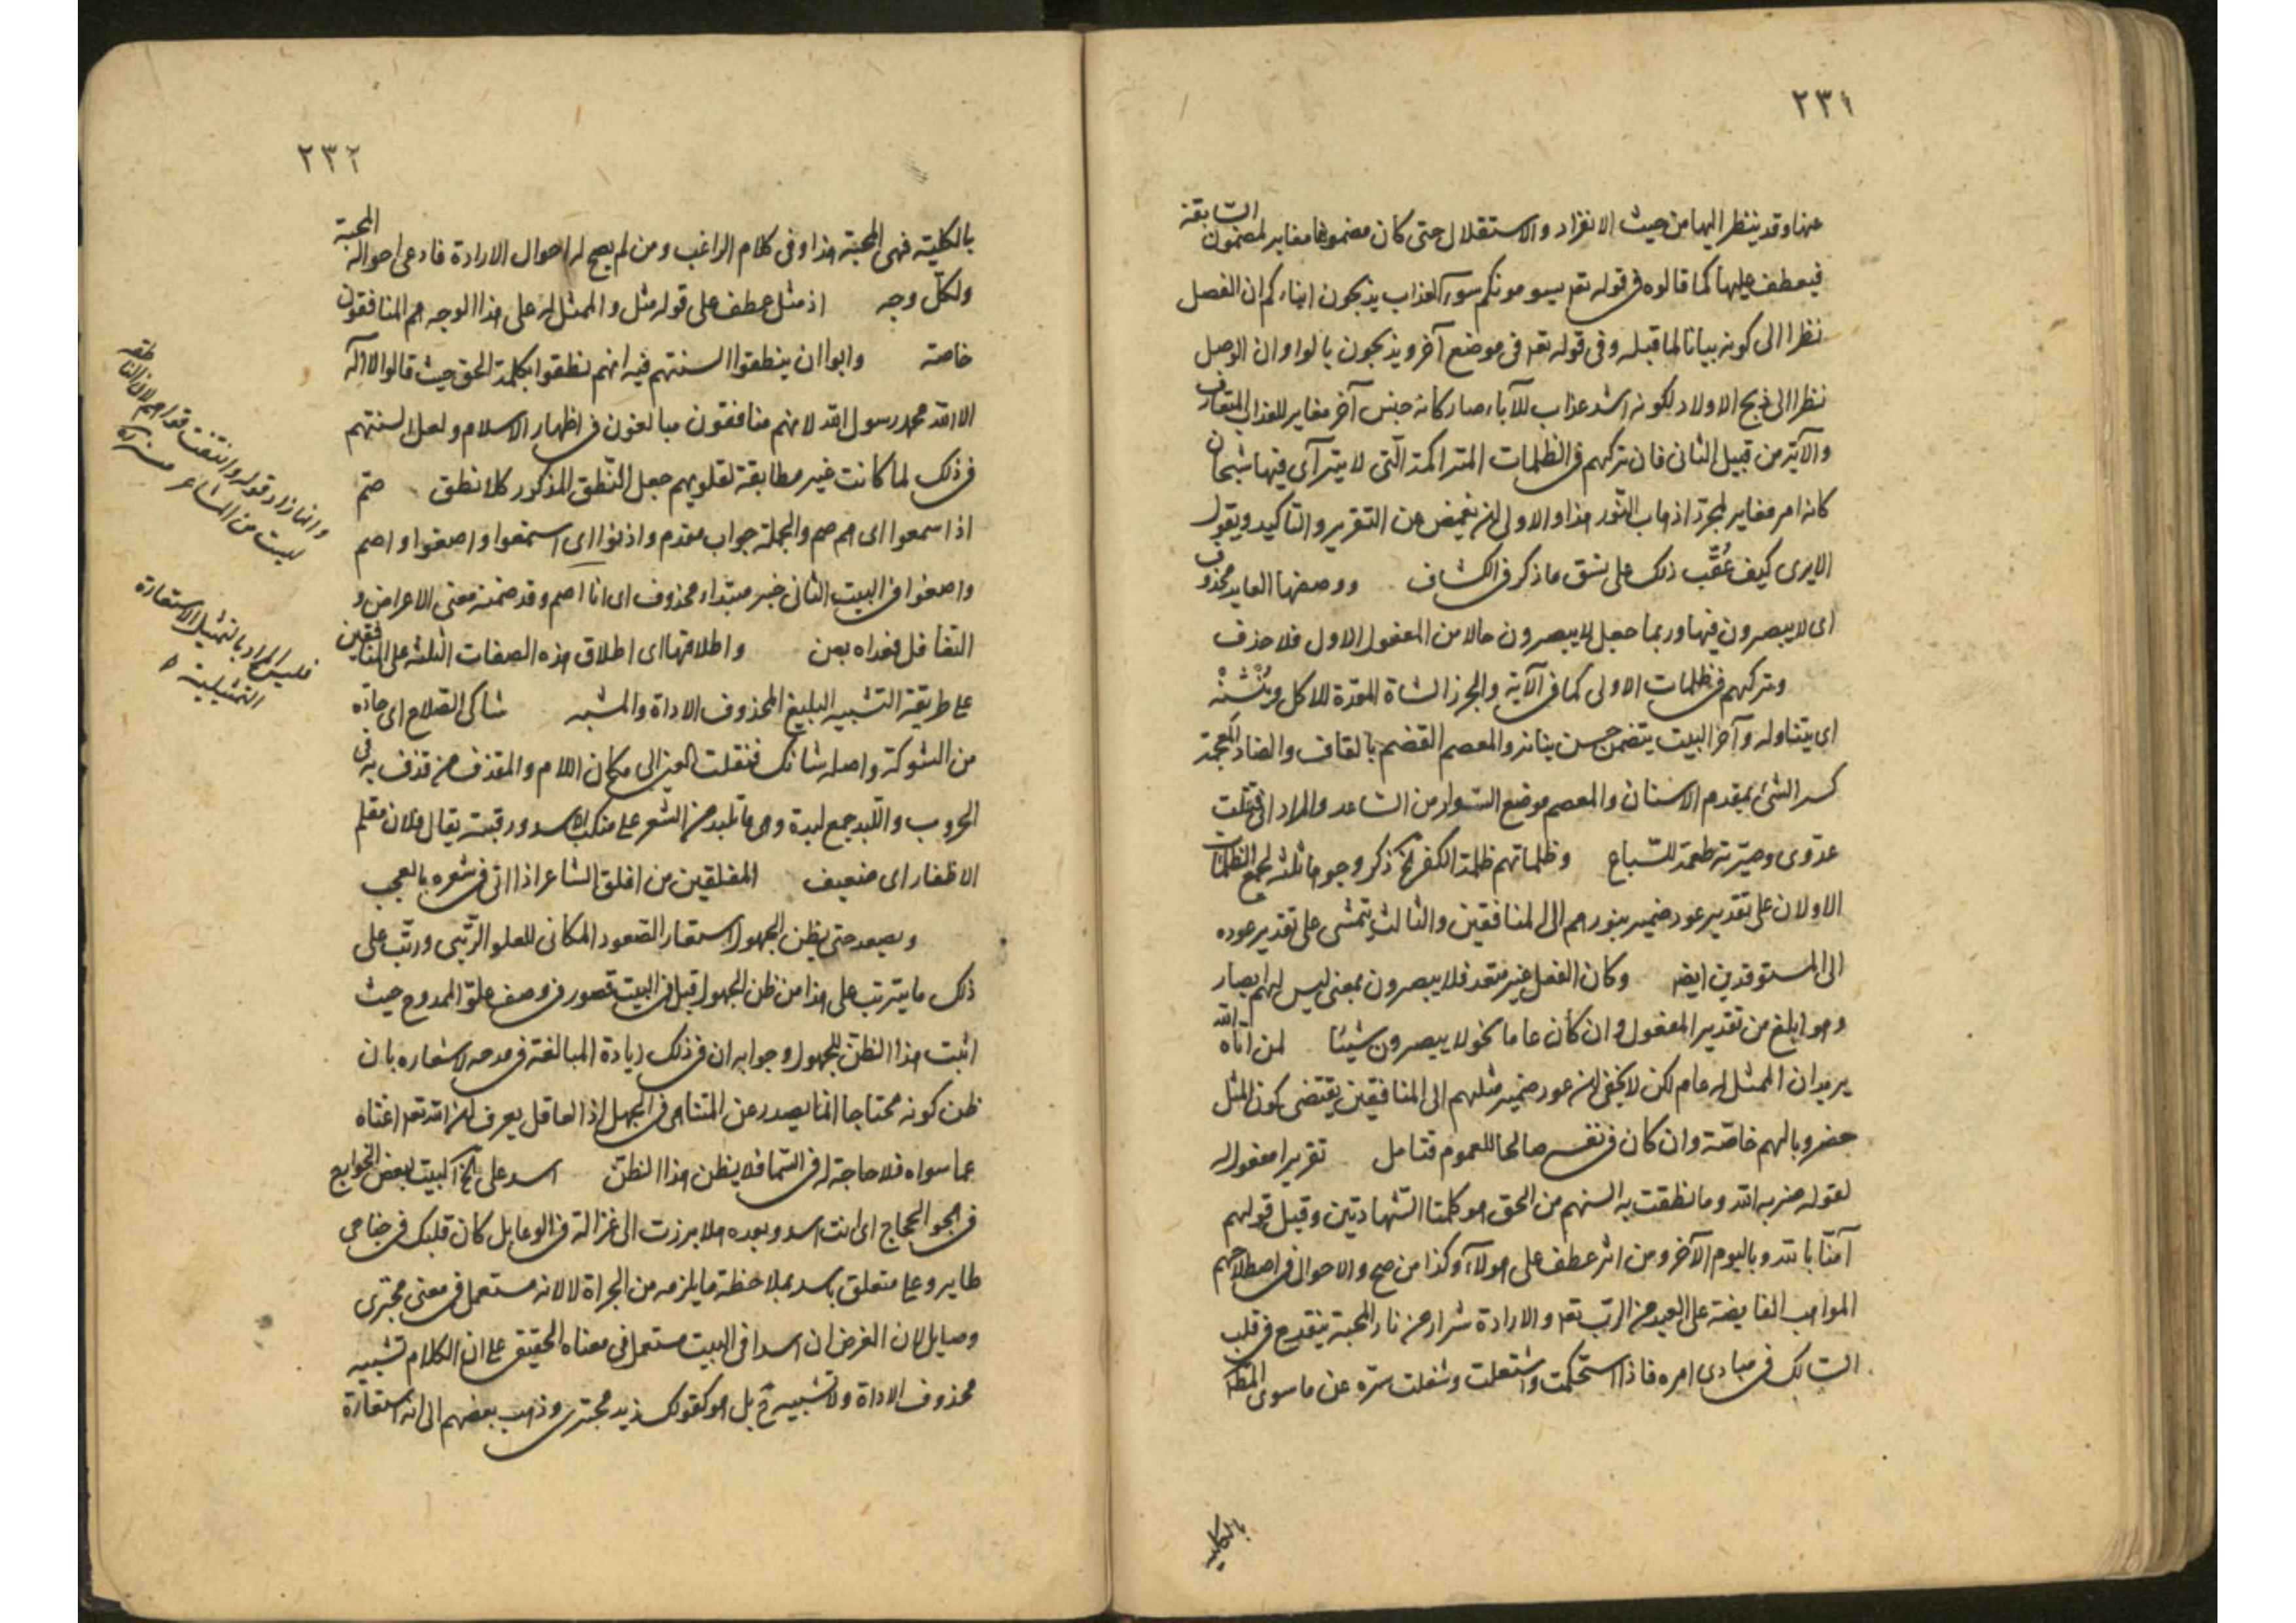 ٢٣١
عنها وقد ينظر اليها من حيث الانفراد والاستقلال حتى كان مضمونها مغاير لمضمون السابقة
فيعطف عليها كما قالوه فى قوله تعه يسومونكم سوء العذاب يذبحون ابناءكم ان الفصل
نظرا الى كونه بيانا لما قبله وفى قوله تعه فى موضع آخر ويذبحون بالواو ان الوصل
نظرا الى ذبح الاولاد لكونه اشد عذاب للآباء صار كانه جنس آخر مغاير للعذاب المتعارف
والآية من قبيل الثانى فان تركهم فى الظلمات المتراكمة التى لا يترآى فيها شبحان
كانه امر مغاير لمجرد اذهاب النور هذا والاولى ان يغمض عن التقرير والتاكيد ويقول
الا يرى كيف عُقّب ذلك على نسق ما ذكر فى الكشاف ووصفها العايد محذوف
اى لا يبصرون فيها وربما جعل لا يبصرون حالا من المفعول الاول فلا حذف
وتركهم فى ظلمات الاولى كما فى الآية والجزر الشاة المعدة للاكل وينُشْنهْ
اى يتناوله وآخر البيت يتضمن حسن بنانه والمعصم القضم بالقاف والضاد المعجمة
كسر الشئ بمقدم الاسنان والمعصم موضع السوار من الساعد والمراد انى قتلت
عدوى وصيرته طعمة للسباع وظلماتهم ظلمة الكفر الخ ذكر وجوها ثلثه لجمع الظلمات
الاولان على تقدير عود ضمير بنورهم الى المنافقين والثالث يتمشى على تقدير عوده
الى المستوقدين ايضه وكان الفعل غير متعد فلا يبصرون بمعنى ليس لهم ابصار
وهو ابلغ من تقدير المفعول وان كان عاما نحو لا يبصرون شيئا لمن اتاه الله
يريد ان الممثل له عام لكن لا يخفى ان عود ضمير مثلهم الى المنافقين يقتضى كون المثل
مضروبا لهم خاصة وان كان فى نفسه صالحا للعموم فتامل تقريرا مفعول له
لقوله ضربه الله وما نطقت به السنهم من الحق هو كلمتا الشهادتين وقيل قولهم
آمنا بالله وباليوم الآخر ومن اثر عطف على هولآء وكذا من صح والاحوال فى اصطلاحهم
المواهب الفايضة على العبد من الرب تعه والارادة شرار من نار المحبة ينقدح فى قلب
السالك فى مبادى امره فاذا استحكمت واشتعلت وشغلت سره عن ما سوى المطلوب
بالكلية
٢٣٢
بالكلية فهى المحبة هذا وفى كلام الراغب ومن لم يصح له احوال الارادة فادعى احوال المحبة
ولكل وجه اذ مثل عطف على قوله مثل والممثل له على هذا الوجه هم المنافقون
خاصة وابوا ان ينطقوا السنتهم فيه انهم نطقوا بكلمة الحق حيث قالوا لا اله
الا الله محمد رسول الله لانهم منافقون مبالغون فى اظهار الاسلام ولعل السنتهم
فى ذلك لما كانت غير مطابقة لقلوبهم جعل النطق المذكور كلا نطق صم
اذا سمعوا اى هم صم والجملة جواب مقدم واذنوا اى استمعوا واصغوا واصم
واصغوا فى البيت الثانى خبر مبتداء محذوف اى انا اصم وقد ضمنه معنى الاعراض و
التغافل فعداه بعن واطلاقها اى اطلاق هذه الصفات الثلثة على المنافقين
على طريقة التشبيه البليغ المحذوف الاداة والمشبه شاكى السلاح اى حاده
من الشوكة واصله شائك فنقلت العين الى مكان اللام والمقذف من قذف به فى
الحروب واللبد جمع لبدة وهى ما تلبد من الشعر على منكب الاسد ورقبته يقال فلان مقلم
الاظفار اى ضعيف المفلقين من افلق الشاعر اذا اتى فى شعره بالعجب
ويصعد حتى يظن الجهول استعار الصعود المكانى للعلو الرتبى ورتب على
ذلك ما يترتب على هذا من ظن الجهول قيل فى البيت قصور فى وصف علو الممدوح حيث
اثبت هذا الظن للجهول وجوابه ان فى ذلك زيادة المبالغة فى مدحه لاشعاره بان
ظن كونه محتاجا انما يصدر عن المتناهى فى الجهل اذ العاقل يعرف ان الله تعه اغناه
عما سواه فلا حاجة له فى السما فلا يظن هذا الظن اسد على الخ البيت لبعض الخوارج
فى هجو الحجاج اى انت اسد وبعده هلا برزت الى غزالة فى الوغا بل كان قلبك فى جناحى
طاير وعلى متعلق باسد بملاحظة ما يلزمه من الجراة لا لانه مستعمل فى معنى مجترى
وصايل لان الغرض ان اسدا فى البيت مستعمل فى معناه الحقيقى على ان الكلام تشبيه
محذوف الاداة ولا تشبيه ح بل هو كقولك زيد مجترى وذهب بعضهم الى انه استعارة
وانما زاد قوله وانتفت قواهم لان الناطقة
ليست من المشاعر منه
فليس المراد بالتمثيل الاستعارة
التمثيلية